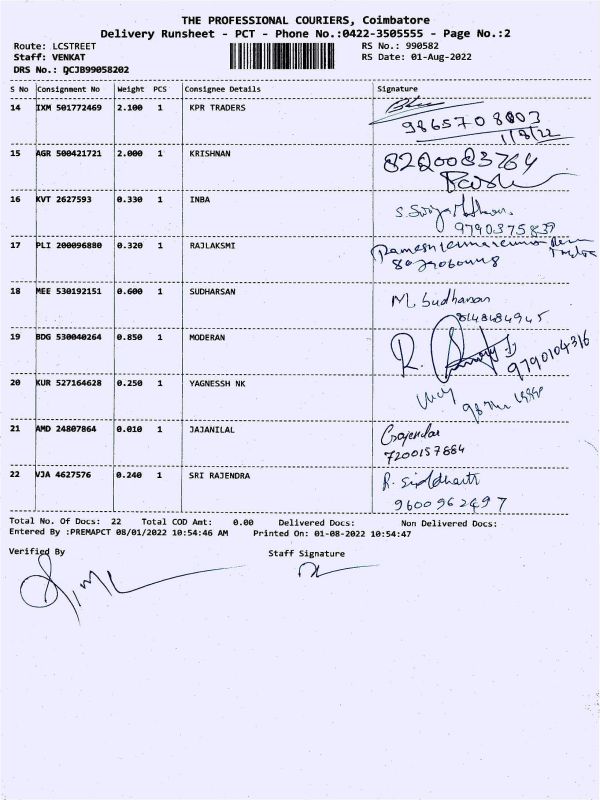 THE PROFESSIONAL COURIERS, Coimbatore
Delivery Runsheet - PCT - Phone No.:0422-3505555 - Page No.:2
Route: LCSTREET RS No.: 990582
Staff: VENKAT RS Date: 01-Aug-2022
DRS No.: QCJB99058202
S No Consignment No Weight PCS Consignee Details Signature
14 IXM 501772469 2.100 1 KPR TRADERS
9865708003
1/8/22
15 AGR 500421721 2.000 1 KRISHNAN
8220083764
16 KVT 2627593 0.330 1 INBA
9790375837
17 PLI 200096880 0.320 1 RAJLAKSMI
18 MEE 530192151 0.600 1 SUDHARSAN M. Sudharsan
8148484945
19 BDG 530040264 0.850 1 MODERAN R.
9790104316
20 KUR 527164628 0.250 1 YAGNESSH NK
21 AMD 24807864 0.010 1 JAJANILAL Gajendar
7200157884
22 VJA 4627576 0.240 1 SRI RAJENDRA R. Siddharth
9600962497
Total No. Of Docs: 22 Total COD Amt: 0.00 Delivered Docs: Non Delivered Docs:
Entered By :PREMAPCT 08/01/2022 10:54:46 AM Printed On: 01-08-2022 10:54:47
Verified By Staff Signature